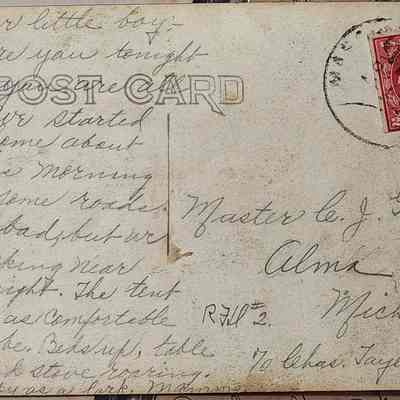 r little boy-
re you tonight
you are a
POST CARD
we started
ome about
s morning
some roads.
bad, but we
king near
ight. The tent
as comfortable
be. Beds up, table
d stove roaring.
as a Mamma
Master C. J.
Alma
Mich
R.F.D. #2.
% Chas.